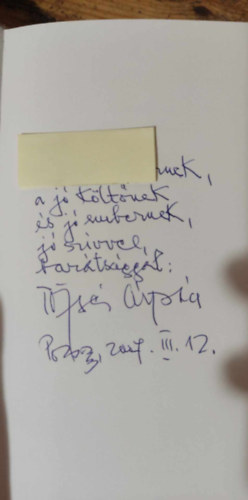 rnek,
a jó költőnek
és jó embernek,
jó szívvel,
barátsággal:
Tőzsér Árpád
Pozs, 2004. III. 12.